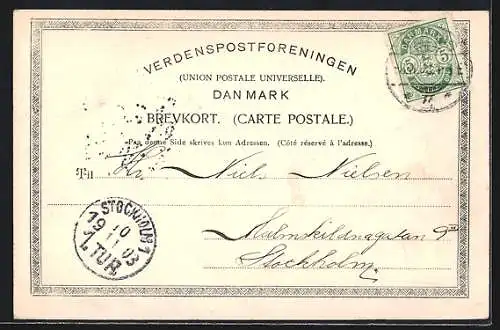 VERDENSPOSTFORENINGEN
(UNION POSTALE UNIVERSELLE).
DANMARK
BREVKORT. (CARTE POSTALE.)
Paa denne Side skrives kun Adressen. (Côté réservé à l'adresse.)
Til Hr. Niels Nielsen
Malmskildnagatan 9
Stockholm.
DANMARK
5 5
STOCKHOLM 1
19 10 03
1
1. TUR